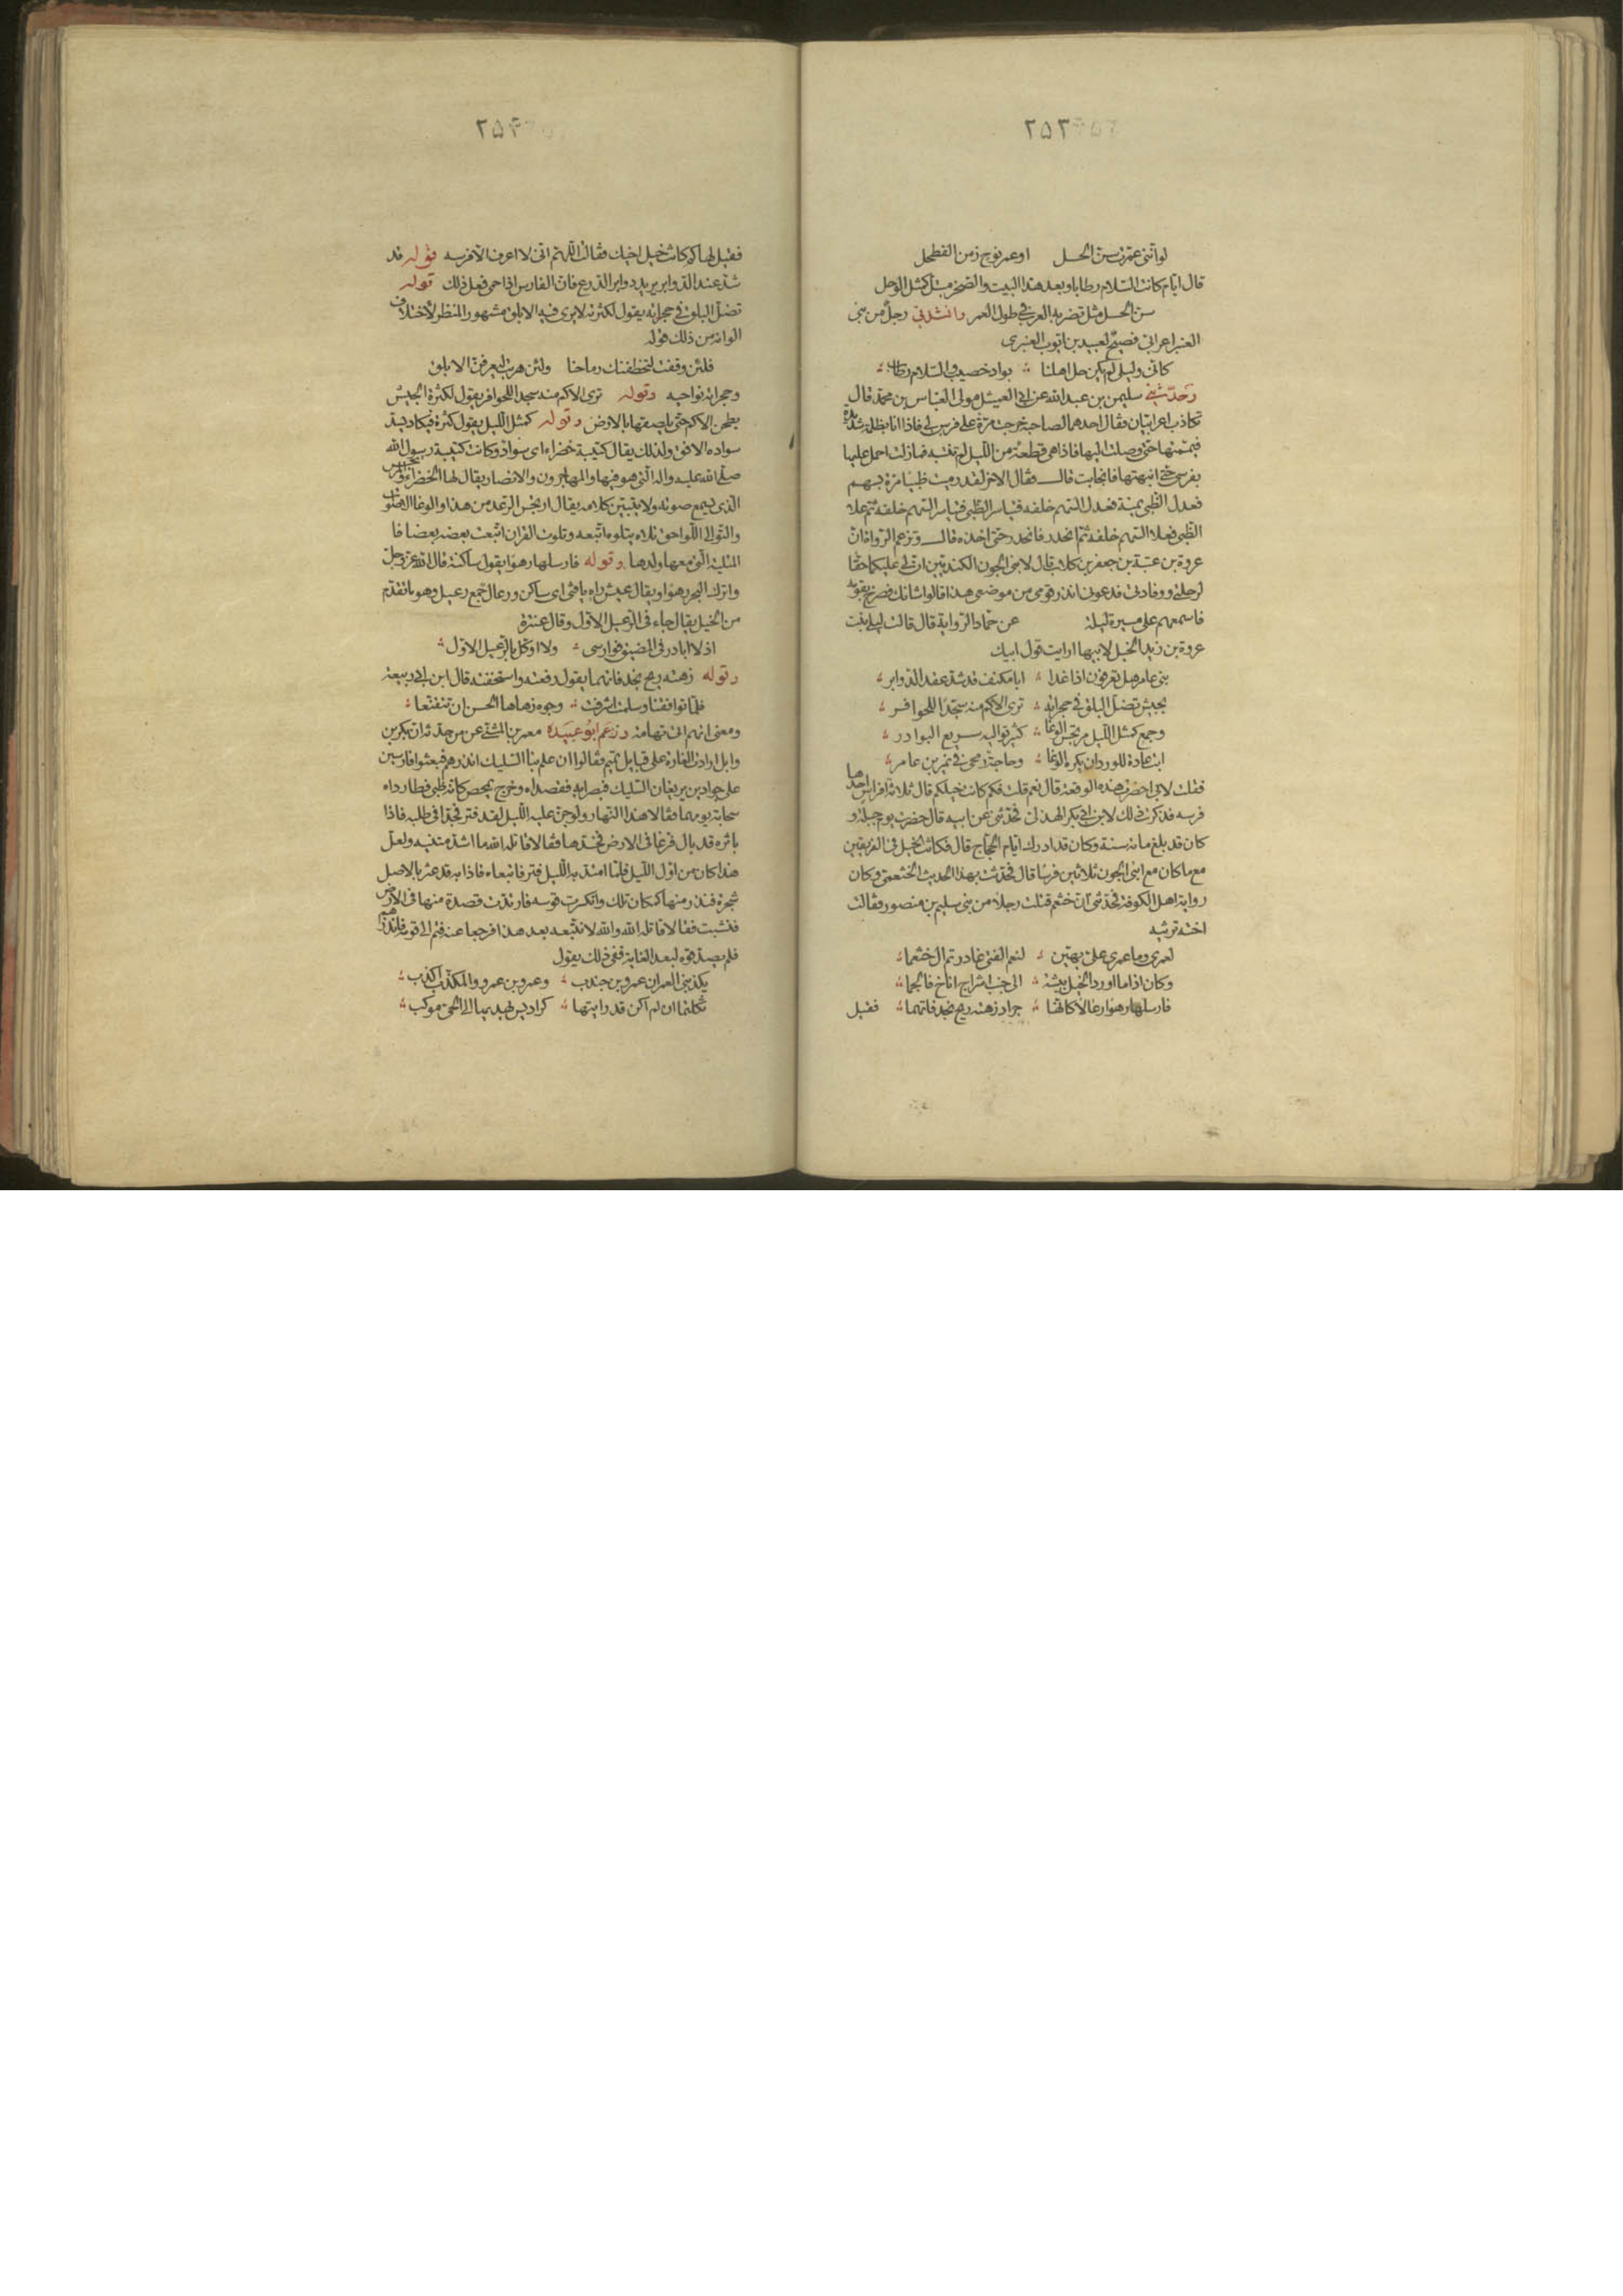 ٢٥٣
لو أنني عمرت سن الحسل او عمر نوح زمن الفطحل
قال ايام كانت السلام رطابا وبعد هذا البيت والصخر مبتل كمثل الوحل
سن الحسل مثل تضربه العرب في طول العمر وانشدني رجل من بني
العنبر اعرابي فصيح لعبيد بن ايوب العنبري
كاني وليلى لم يكن حل اهلنا بواد خصيب والسلام رطاب
وحدثني سليمن بن عبدالله عن ابي العميثل مولى العباس بن محمد قال
تكاذب اعرابيان فقال احدهما لصاحبه خرجت مرة على فرس لي فاذا انا بظلمة شديدة
فيممتها حتى وصلت اليها فاذا هي قطعة من الليل لم تنتبه فما زلت احمل عليها
بفرسي حتى انبهتها فانجابت قال فقال الاخر لقد رميت ظبيا مرة بسهم
فعدل الظبي يمنة فعدل السهم خلفه فتياسر الظبي فتياسر السهم خلفه ثم علا
الظبي فعلا السهم خلفه ثم انحدر فانحدر حتى اخذه قال وتزعم الرواة ان
عروة بن عتبة بن جعفر بن كلاب قال لابني الجون الكنديين ان لي عليكما حقا
لرحلتي ووفادتي فدعوني انذر قومي من موضعي هذا فقالوا شانك فصرخ بقومه
فاسمعهم على مسيرة ليلة عن حماد الراوية قال قالت ليلى بنت
عروة بن زيد الخيل لابيها ارايت قول ابيك
بني عامر هل تعرفون اذا غدا ابا مكنف قد شد عقد الدوابر
بجيش تضل البلق في حجراته ترى الاكم منه سجدا للحوافر
وجمع كمثل الليل مرتجس الوغا كثير تواليه سريع البوادر
ابت عادة للورد ان يكره الوغا وحاجة رمحي في نمير بن عامر
فقلت لابي احضرت هذه الوقعة قال نعم قلت فكم كانت خيلكم قال ثلاثة افراس احدها
فرسه فذكرت ذلك لابن ابي بكر الهذلي فحدثني عن ابيه قال حضرت يوم جبلة و
كان قد بلغ مائة سنة وكان قد ادرك ايام الحجاج قال فكانت الخيل في الفريقين
مع ما كان مع ابني الجون ثلاثين فرسا قال فحدثت بهذا الحديث الخثعمي وكان
رواية اهل الكوفة فحدثني ان خثعم قتلت رجلا من بني سليم بن منصور فقالت
اخته ترثيه
لعمري وما عمري علي بهين لنعم الفتى غادرتم ال خثعما
وكان اذا ما اورد الخيل بيشة الى جنب اشراج اناخ فالجما
فارسلها رهوا رعالا كانها جراد زهته ريح نجد فاتهما فقيل
٢٥٤
فقيل لها كم كانت خيل اخيك فقالت اللهم اني لا اعرف الا فرسه قوله قد
شد عقد الدوابر يريد دوابر الدرع فان الفارس اذا حمي فعل ذلك قوله
تضل البلق في حجراته يقول لكثرته لا يرى فيه الابلق مشهور المنظر لاختلاف
الوانه من ذلك قوله
فلئن وقفت لتخطفنك رماحنا ولئن هربت ليعرفن الابلق
وحجراته نواحيه وقوله ترى الاكم منه سجدا للحوافر يقول لكثرة الجيش
يطحن الاكم حتى يلصقها بالارض وقوله كمثل الليل يقول كثرة فيكاد يسد
سواده الافق ولذلك يقال كتيبة خضراء اي سواد وكانت كتيبة رسول الله
صلى الله عليه واله التي هو فيها والمهاجرون والانصار يقال لها الخضراء ومرتجس
الذي يسمع صوته ولا يتبين كلامه يقال ارتجس الرعد من هذا والوغا الاصوات
والتوالي اللواحق تلاه يتلوه اتبعه وتلوت القران اتبعت بعضه بعضا فا
المتلية التي معها ولدها وقوله فارسلها رهوا يقول ساكنة قال الله عز وجل
واترك البحر رهوا ويقال عيش راه يا فتى اي ساكن ورعال جمع رعيل وهو ما تقدم
من الخيل يقال جاء في الرعيل الاول وقال عنترة
اذ لا ابادر في المضيق فوارسي ولا اوكل بالرعيل الاول
وقوله زهته ريح نجد فاتهما يقول رفعته واستخفته قال ابن ابي ربيعة
فلما تواقفنا وسلمت اشرقت وجوه زهاها الحسن ان تتقنعا
ومعنى اتهم اتى تهامة وزعم ابو عبيدة معمر بن المثنى عن من حدثه ان بكر بن
وايل ارادت الغارة على قبايل تميم فقالوا ان علم بنا السليك انذرهم فبعثوا فارسين
على جوادين يريغان السليك فبصرا به فقصداه وخرج يمحص كانه ظبي فطارداه
سحابة يومهما فقالا هذا النهار ولو جن عليه الليل لقد فتر فجدا في طلبه فاذا
باثره قد بال فرغا في الارض فخدها فقالا قاتله الله ما اشد متنيه ولعل
هذا كان من اول الليل فلما امتد به الليل فتر فاتبعاه فاذا به قد عثر باصل
شجرة فندر منها كمكان تلك وانكسرت قوسه فارتدت قصدة منها في الارض
فنشبت فقالا قاتله الله والله لا نتبعه بعد هذا فرجعا عنه فتم الى قومه فانذرهم
فلم يصدقوه لبعد الغاية ففي ذلك يقول
يكذبني العمران عمرو بن جندب وعمرو بن عمرو والمكذب اكذب
ثكلتهما ان لم اكن قد رايتها كراديس يهديها الى الحي موكب